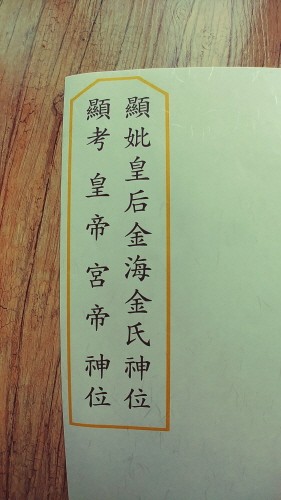 顯妣皇后金海金氏神位
顯考皇帝宮帝神位